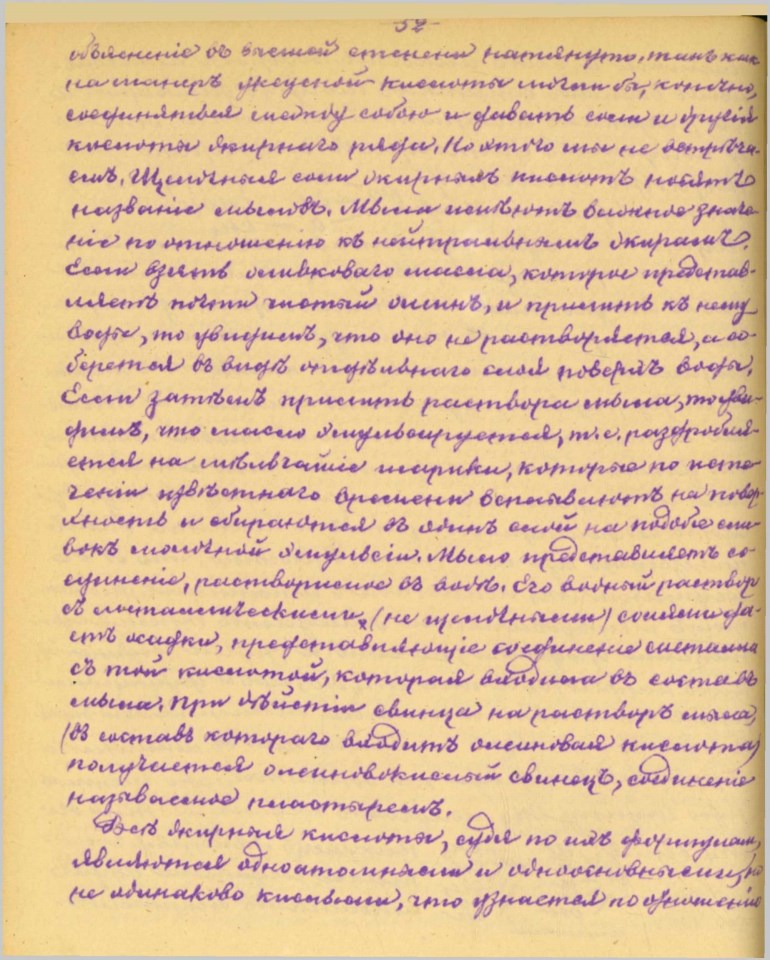 52
объясненіе въ высшей степени натянуто, такъ какъ
на манеръ уксусной кислоты могли бы, конечно,
соединяться между собою и давать соли и другія
кислоты жирнаго ряда. Но этого мы не встрѣча-
емъ. Щелочныя соли жирныхъ кислотъ носятъ
названіе мыловъ. Мыла имѣютъ важное значе-
ніе по отношенію къ нейтральнымъ жирамъ.
Если взять оливковаго масла, которое представ-
ляетъ почти чистый олеинъ, и прилить къ нему
воды, то увидимъ, что оно не растворяется, а со-
берется въ видѣ отдѣльнаго слоя поверхъ воды.
Если затѣмъ прилить раствора мыла, то уви-
димъ, что масло эмульсируется, т.е. раздробля-
ется на мельчайшіе шарики, которые по исте-
ченіи извѣстнаго времени всплываютъ на повер-
хность и сбираются въ одинъ слой на подобіе сли-
вокъ молочной эмульсіи. Мыло представляетъ со-
единеніе, растворимое въ водѣ. Его водный растворъ
съ металлическими (не щелочными) солями да-
етъ осадки, представляющіе соединеніе металла
съ той кислотой, которая входила въ составъ
мыла. При дѣйствіи свинца на растворъ мыла,
(въ составъ котораго входитъ олеиновая кислота)
получается олеиновокислый свинецъ, соединеніе
называемое пластыремъ.
Всѣ жирныя кислоты, судя по ихъ формуламъ,
являются одноатомными и одноосновными, но
не одинаково кислыми, что узнается по отношенію